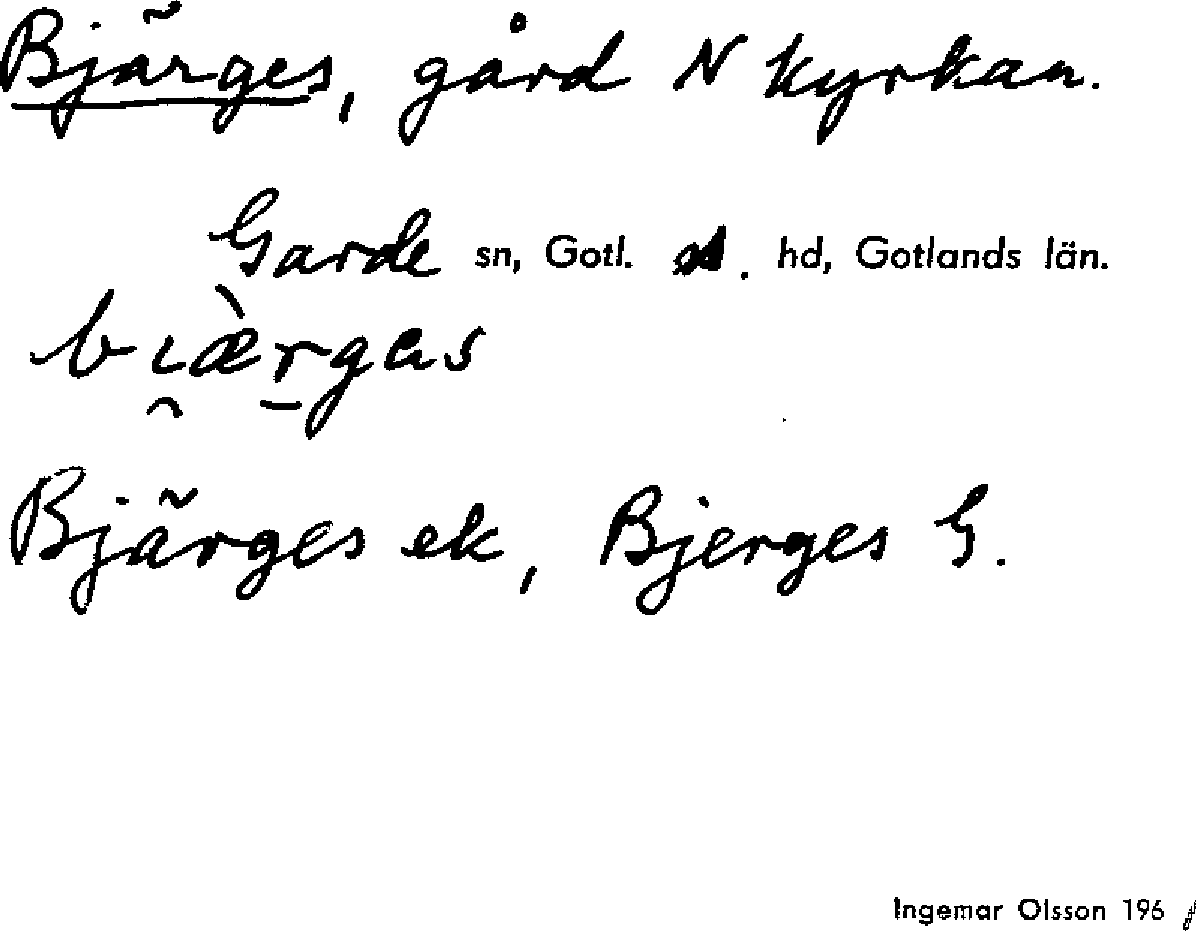 Bjärges, gård N kyrkan.
Garde sn, Gotl. s. hd, Gotlands län.
bı̯æ̀r̠gas
Bjärges ek, Bjerges G.
Ingemar Olsson 196